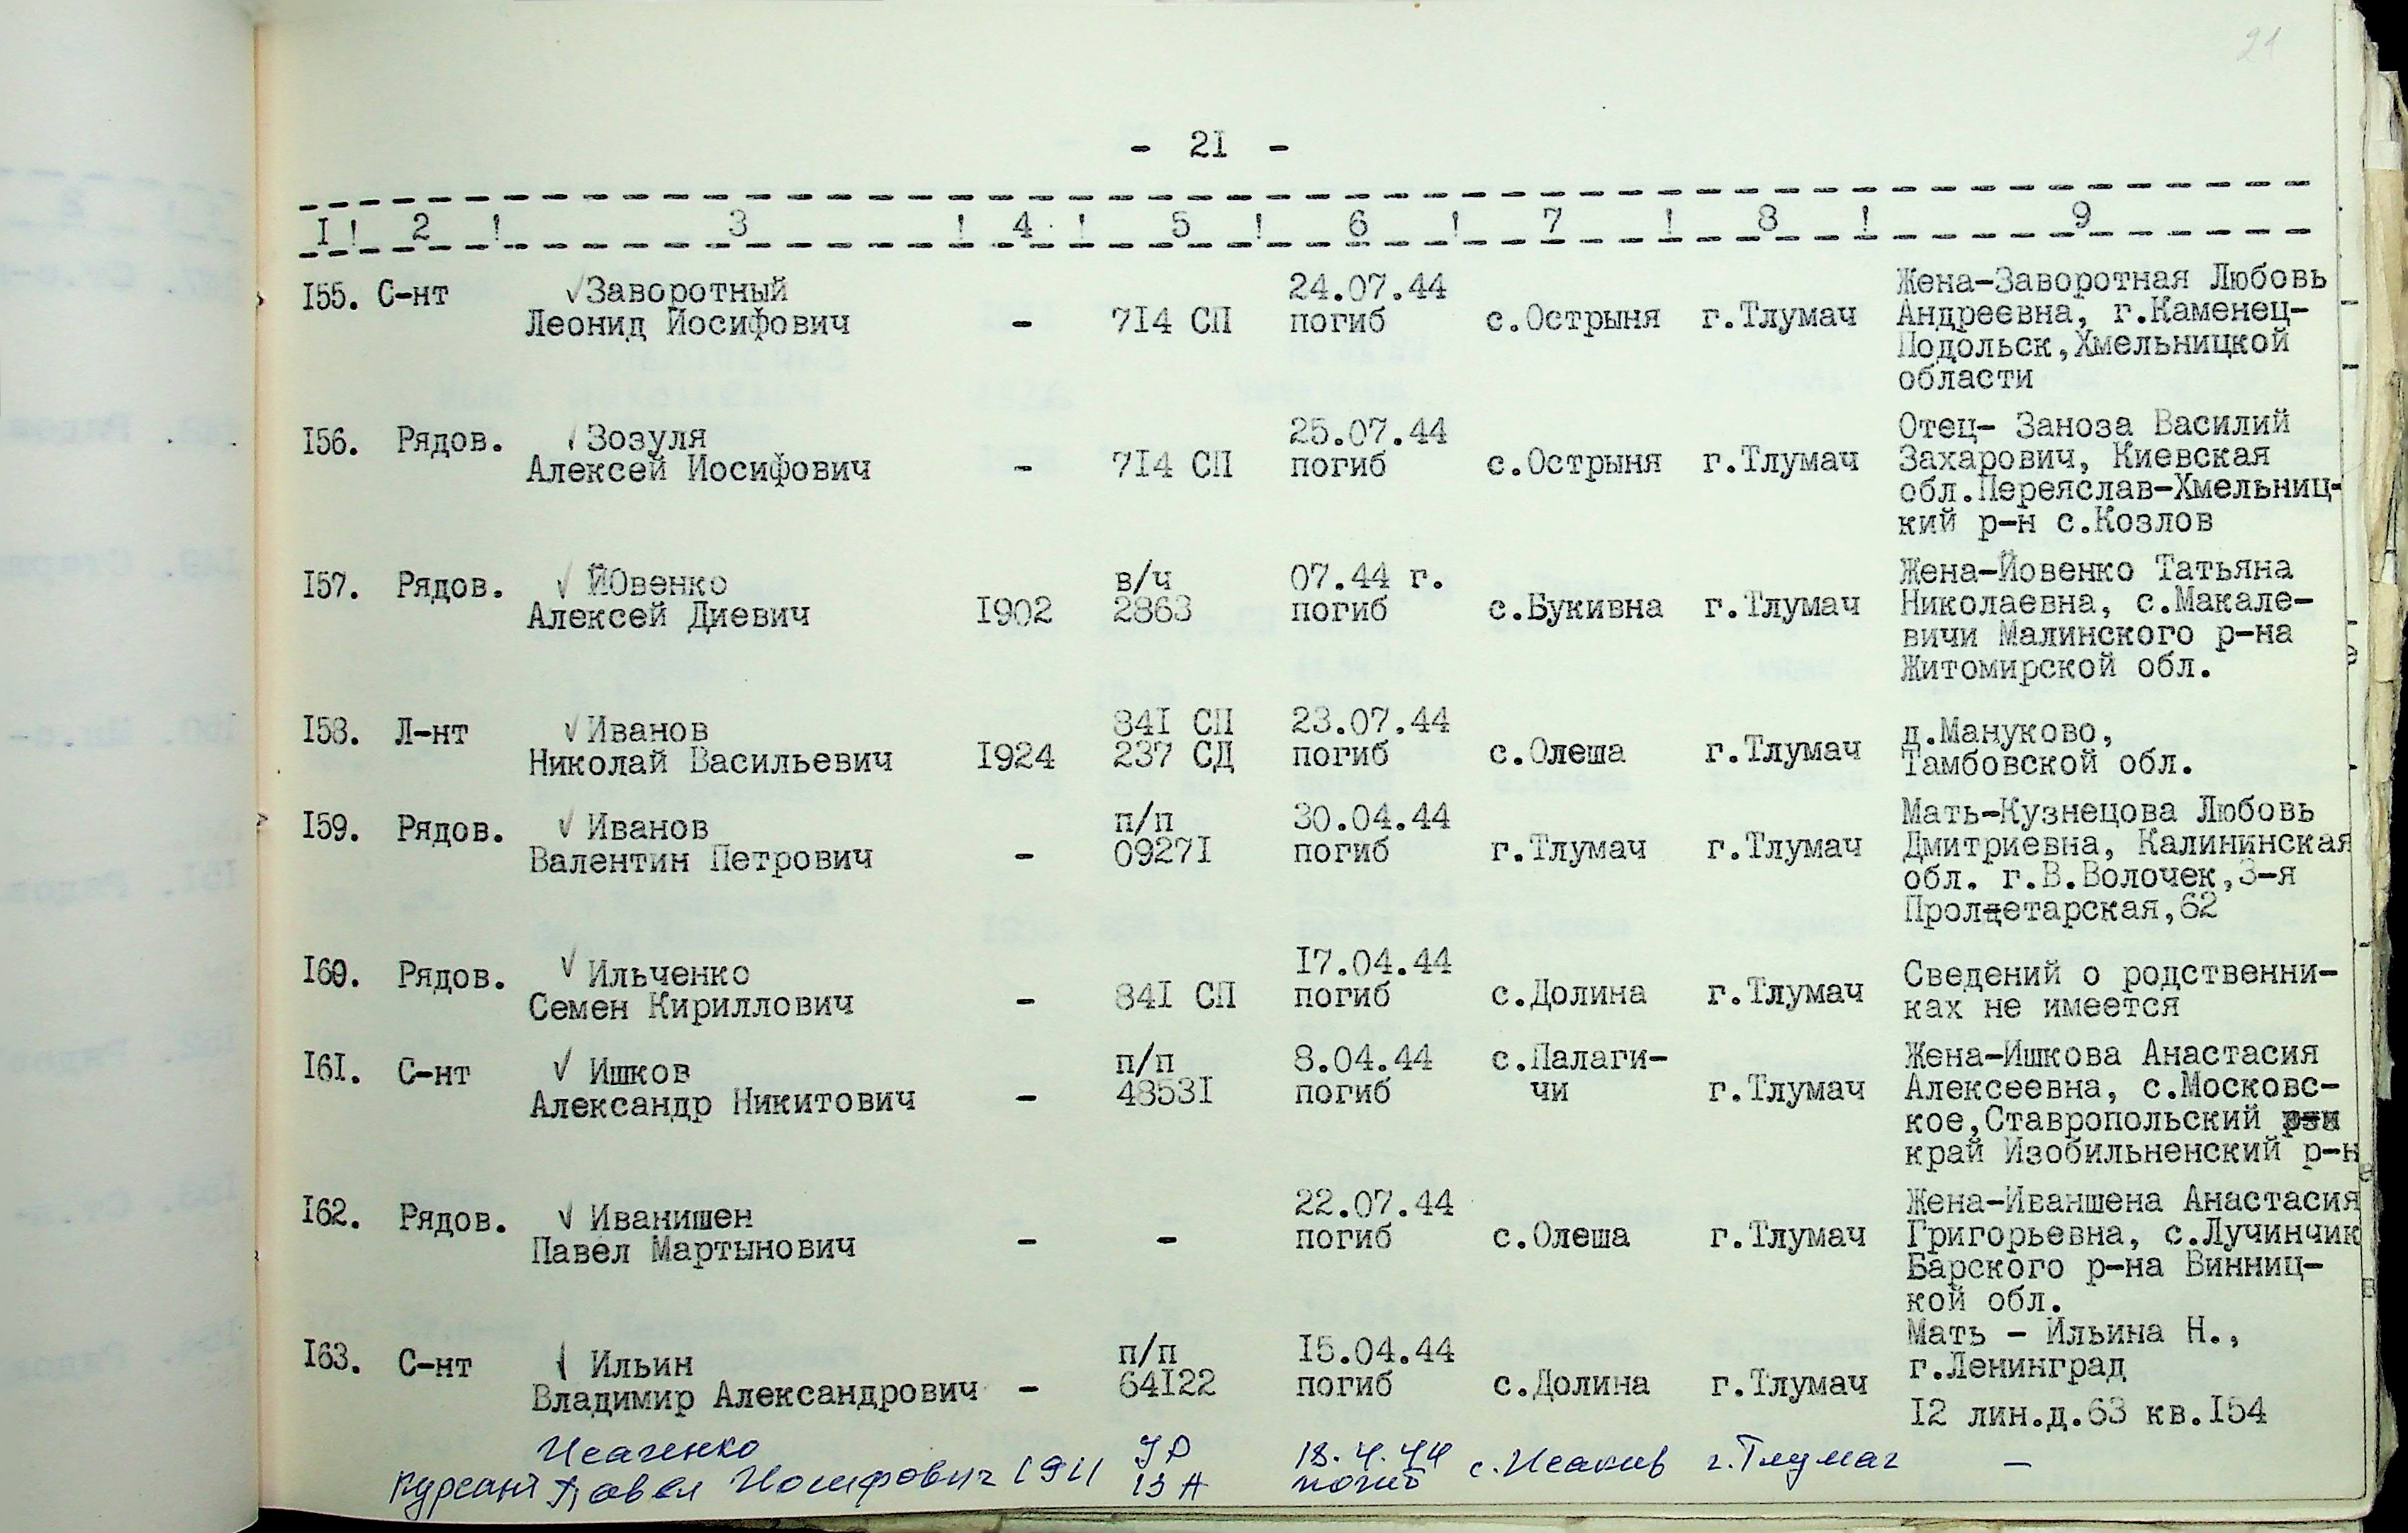 21
- 21 -
I ! 2 ! 3 ! 4 ! 5 ! 6 ! 7 ! 8 ! 9
155. С-нт Заворотный 24.07.44 Жена-Заворотная Любовь
Леонид Иосифович - 714 СП погиб с.Острыня г.Тлумач Андреевна, г.Каменец-
Подольск,Хмельницкой
области
156. Рядов. Зозуля 25.07.44 Отец- Заноза Василий
Алексей Иосифович - 714 СП погиб с.Острыня г.Тлумач Захарович, Киевская
обл.Переяслав-Хмельниц-
кий р-н с.Козлов
157. Рядов. ЙОвенко в/ч 07.44 г. Жена-Йовенко Татьяна
Алексей Диевич 1902 2863 погиб с.Букивна г.Тлумач Николаевна, с.Макале-
вичи Малинского р-на
Житомирской обл.
158. Л-нт Иванов 841 СП 23.07.44 д.Мануково,
Николай Васильевич 1924 237 СД погиб с.Олеша г.Тлумач Тамбовской обл.
159. Рядов. Иванов п/п 30.04.44 Мать-Кузнецова Любовь
Валентин Петрович - 09271 погиб г.Тлумач г.Тлумач Дмитриевна, Калининская
обл. г.В.Волочек,3-я
Пролцетарская,62
160. Рядов. Ильченко 17.04.44 Сведений о родственни-
Семен Кириллович - 841 СП погиб с.Долина г.Тлумач ках не имеется
161. С-нт Ишков п/п 8.04.44 с.Палаги- Жена-Ишкова Анастасия
Александр Никитович - 48531 погиб чи г.Тлумач Алексеевна, с.Московс-
кое,Ставропольский
край Изобильненский р-н
162. Рядов. Иванишен 22.07.44 Жена-Иваншена Анастасия
Павел Мартынович - - погиб с.Олеша г.Тлумач Григорьевна, с.Лучинчик
Барского р-на Винниц-
кой обл.
163. С-нт Ильин п/п 15.04.44 Мать - Ильина Н.,
Владимир Александрович - 64122 погиб с.Долина г.Тлумач г.Ленинград
12 лин.д.63 кв.154
Исаченко УР 18.4.44 с.Исаков г.Тлумач -
курсант Павел Иосифович 1911 13 А погиб